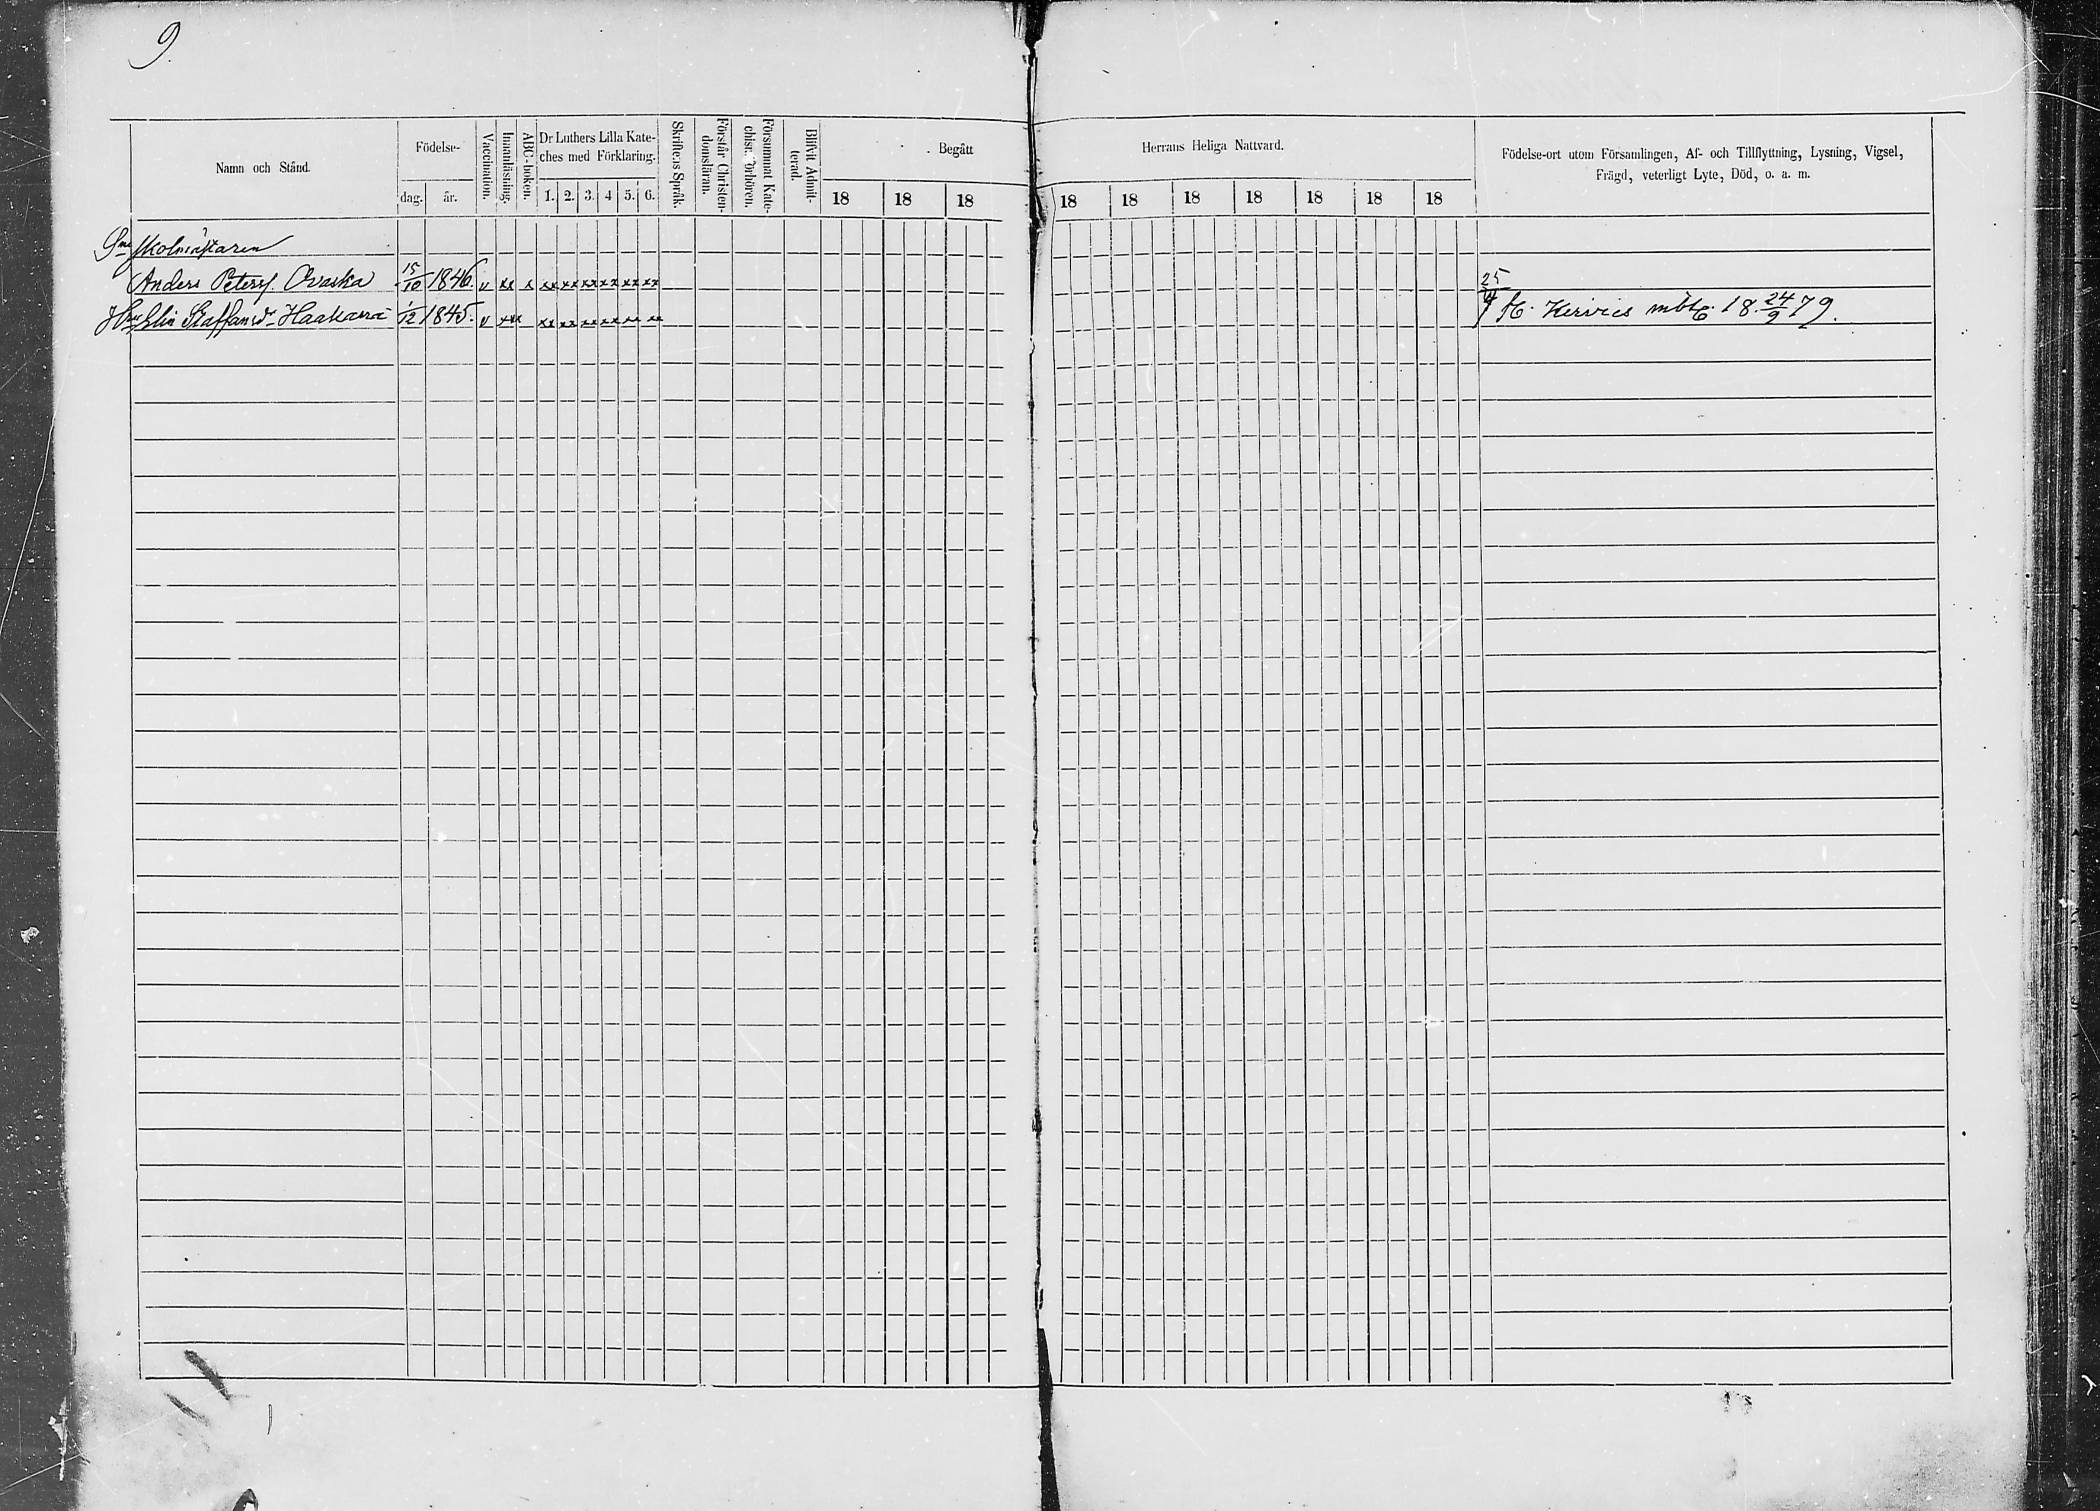 9.
Namn och Stånd.
Födelse-
dag. år.
Vaccination.
Innanläsning.
ABC-boken.
Dr Luthers Lilla Kate-
ches med Förklaring.
1. 2. 3. 4 5. 6.
Skriftens Språk.
Förstår Christen-
domsläran.
Försummat Kate-
chisr. Förhören.
Blifvit Admit-
terad.
Begått
18 18 18
Herrans Heliga Nattvard.
18 18 18 18 18 18 18
Födelse-ort utom Församlingen, Af- och Tillflyttning, Lysning, Vigsel,
Frägd, veterligt Lyte, Död, o. a. m.
Skolmästaren
Anders Peterss. Ovaska 15/10 1846. v xx x xx xx xx xx xx xx
Hu Elin Staffansdr 1/12 1845. v xxx xx xx xx xx xx xx
25/9 fr. 18 24/9 79.